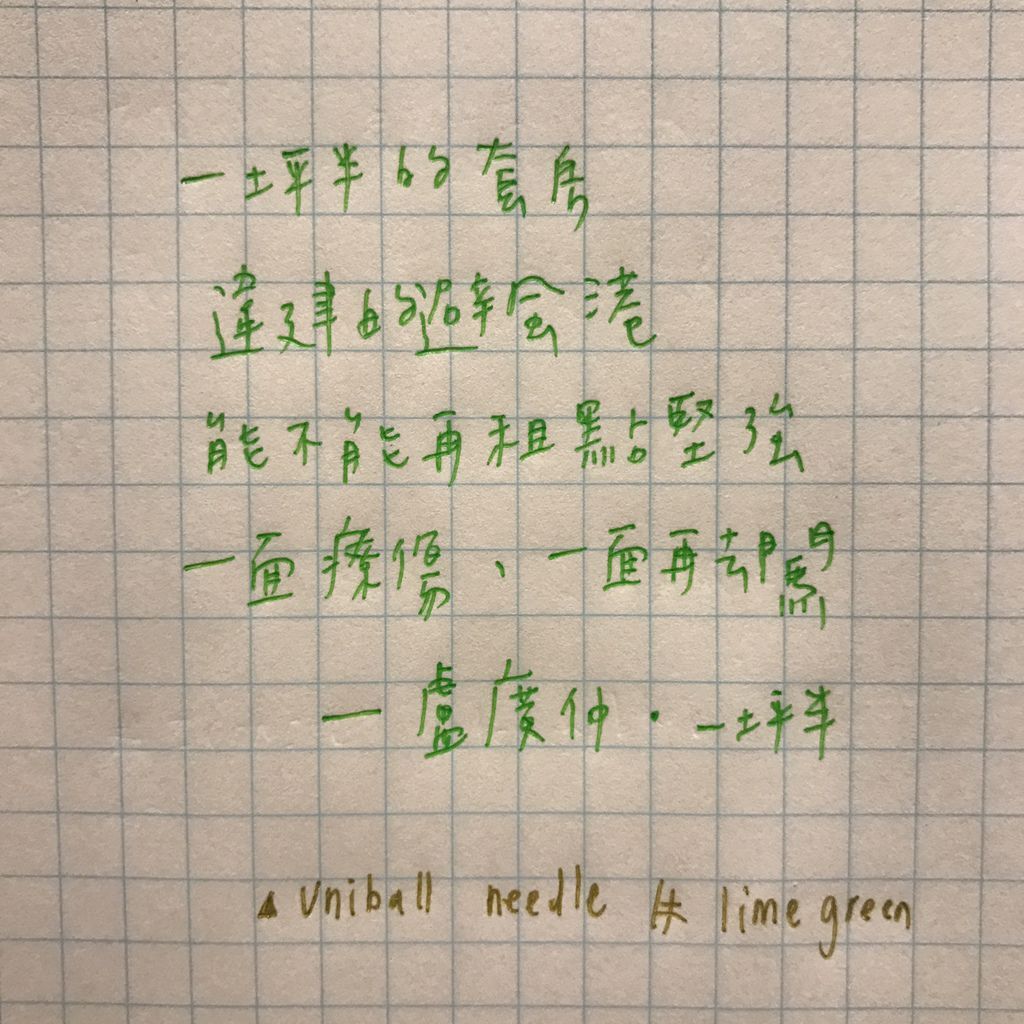 一坪半的套房
違建的避風港
能不能再租點堅強
一面療傷、一面再去闖
— 盧廣仲・一坪半
▲ uniball needle lime green